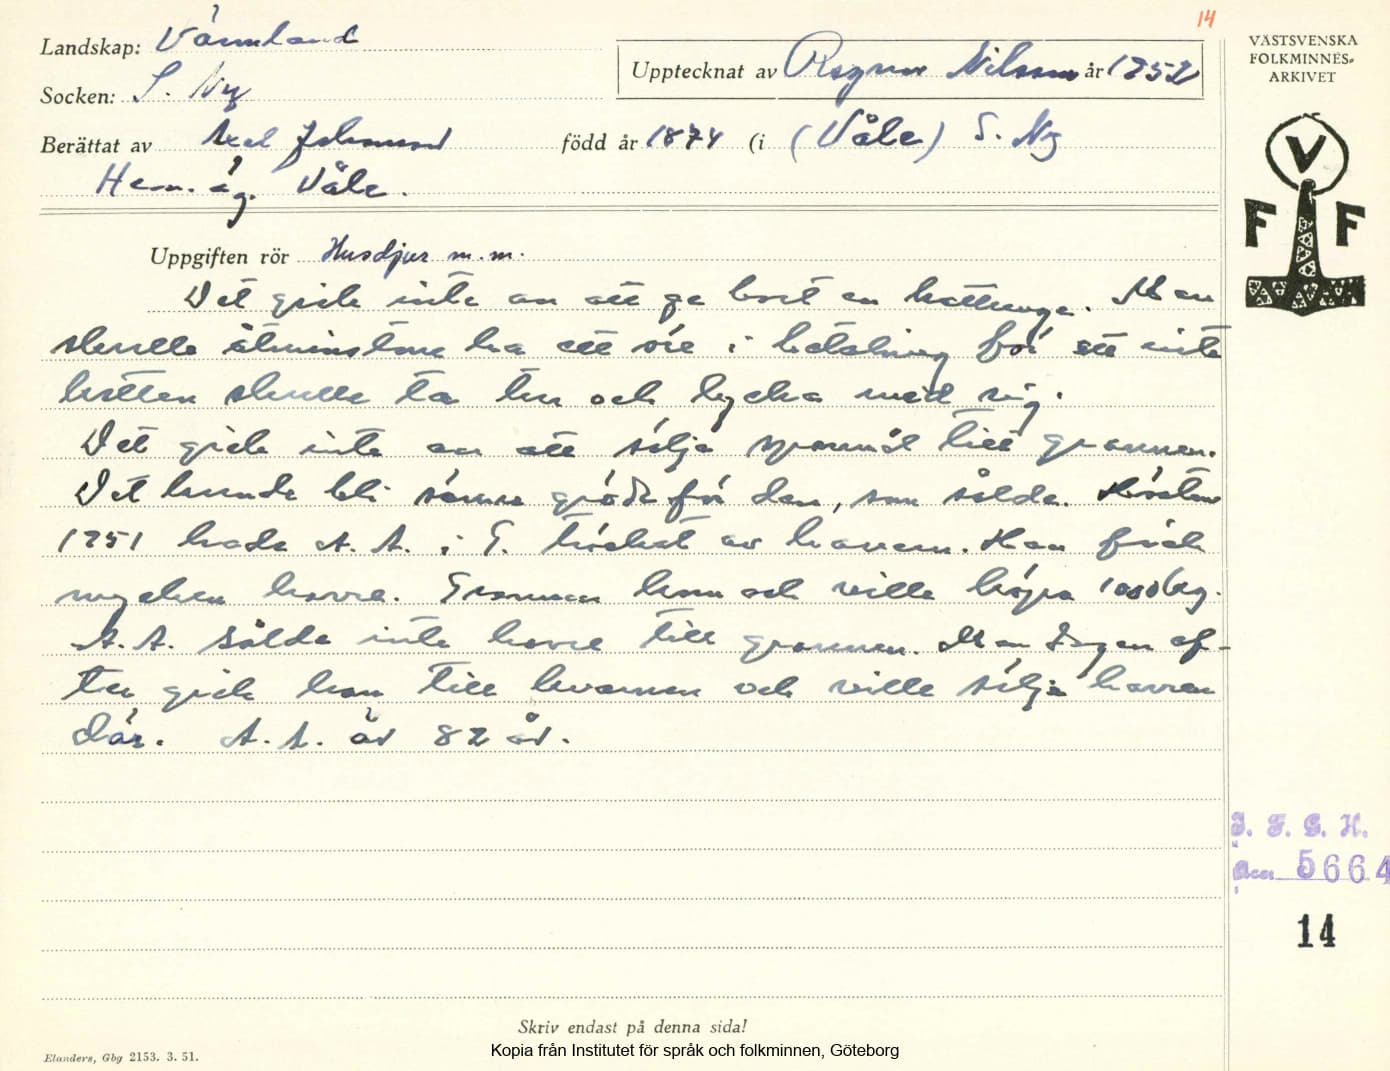 14
Landskap: Värmland
VÄSTSVENSKA
FOLKMINNES-
ARKIVET
Upptecknat av Ragnar Nilsson år 1952
Socken: S. Ny
Berättat av Axel Johansson född år 1874 (i (Våle) S. Ny
Hem. äg. Våle.
V
F F
Uppgiften rör Husdjur m.m.
Det gick inte an att ge bort en kattunge. Man
skulle åtminstone ha ett öre i betalning för att inte
katten skulle ta tur och lycka med sig.
Det gick inte an att sälja spannmål till grannen.
Det kunde bli sämre gröda för den, som sålde. Hösten
1951 hade A. A. i G. tröskat av havren. Han fick
mycken havre. Grannen kom och ville köpa 1000 kg.
A. A. sålde inte havre till grannen. Men dagen ef-
ter gick han till kvarnen och ville sälja havren
där. A. A. är 82 år.
I. F. G. H.
Acc 5664
14
Skriv endast på denna sida!
Elanders, Gbg 2153. 3. 51.
Kopia från Institutet för språk och folkminnen, Göteborg